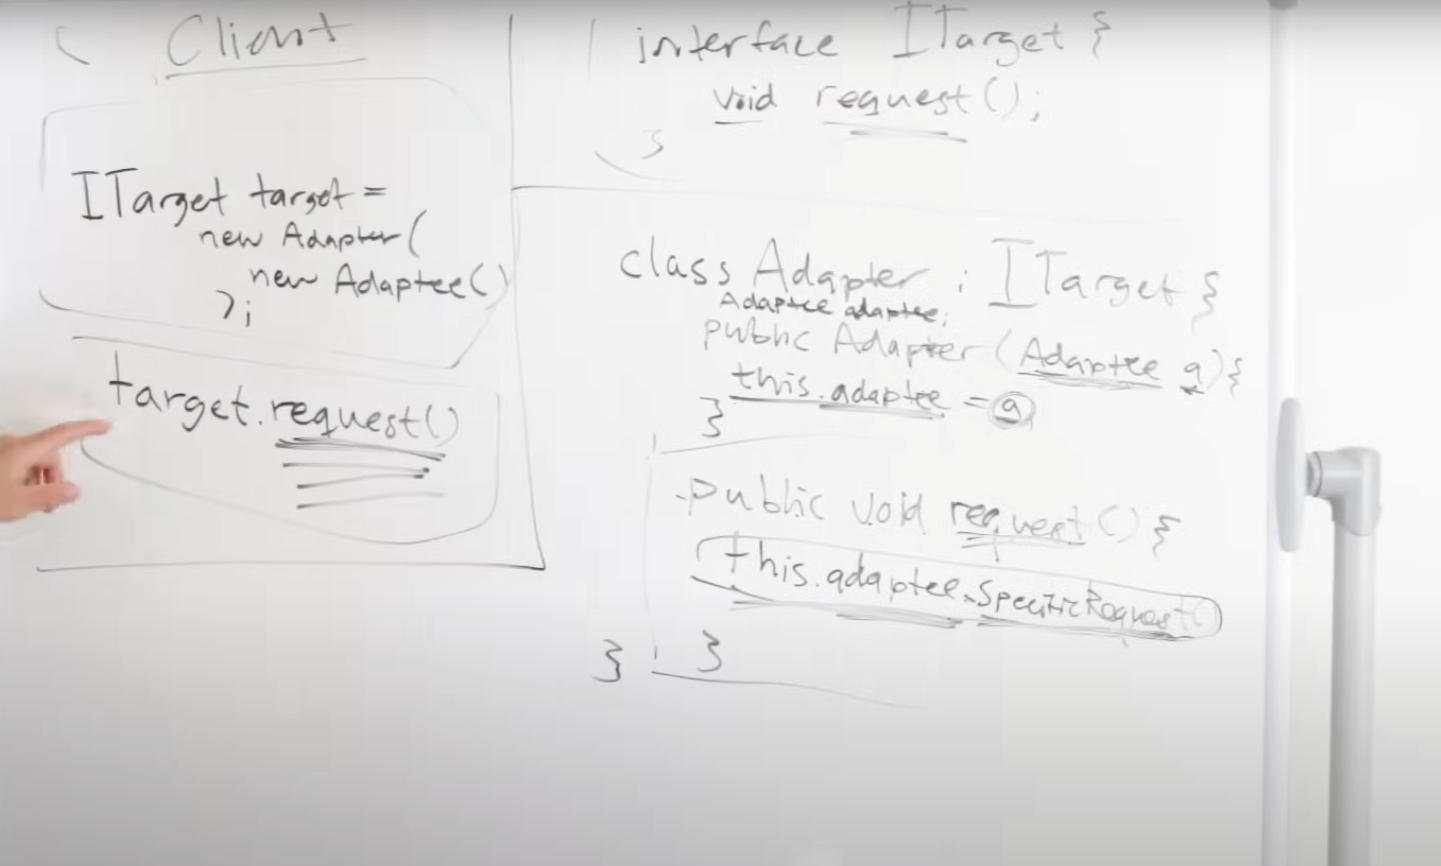 Client
ITarget target =
new Adapter(
new Adaptee()
);
target.request()
interface ITarget {
void request();
}
class Adapter : ITarget {
Adaptee adaptee;
public Adapter (Adaptee a){
this.adaptee = a
}
public void request() {
this.adaptee.SpecificRequest()
}
}